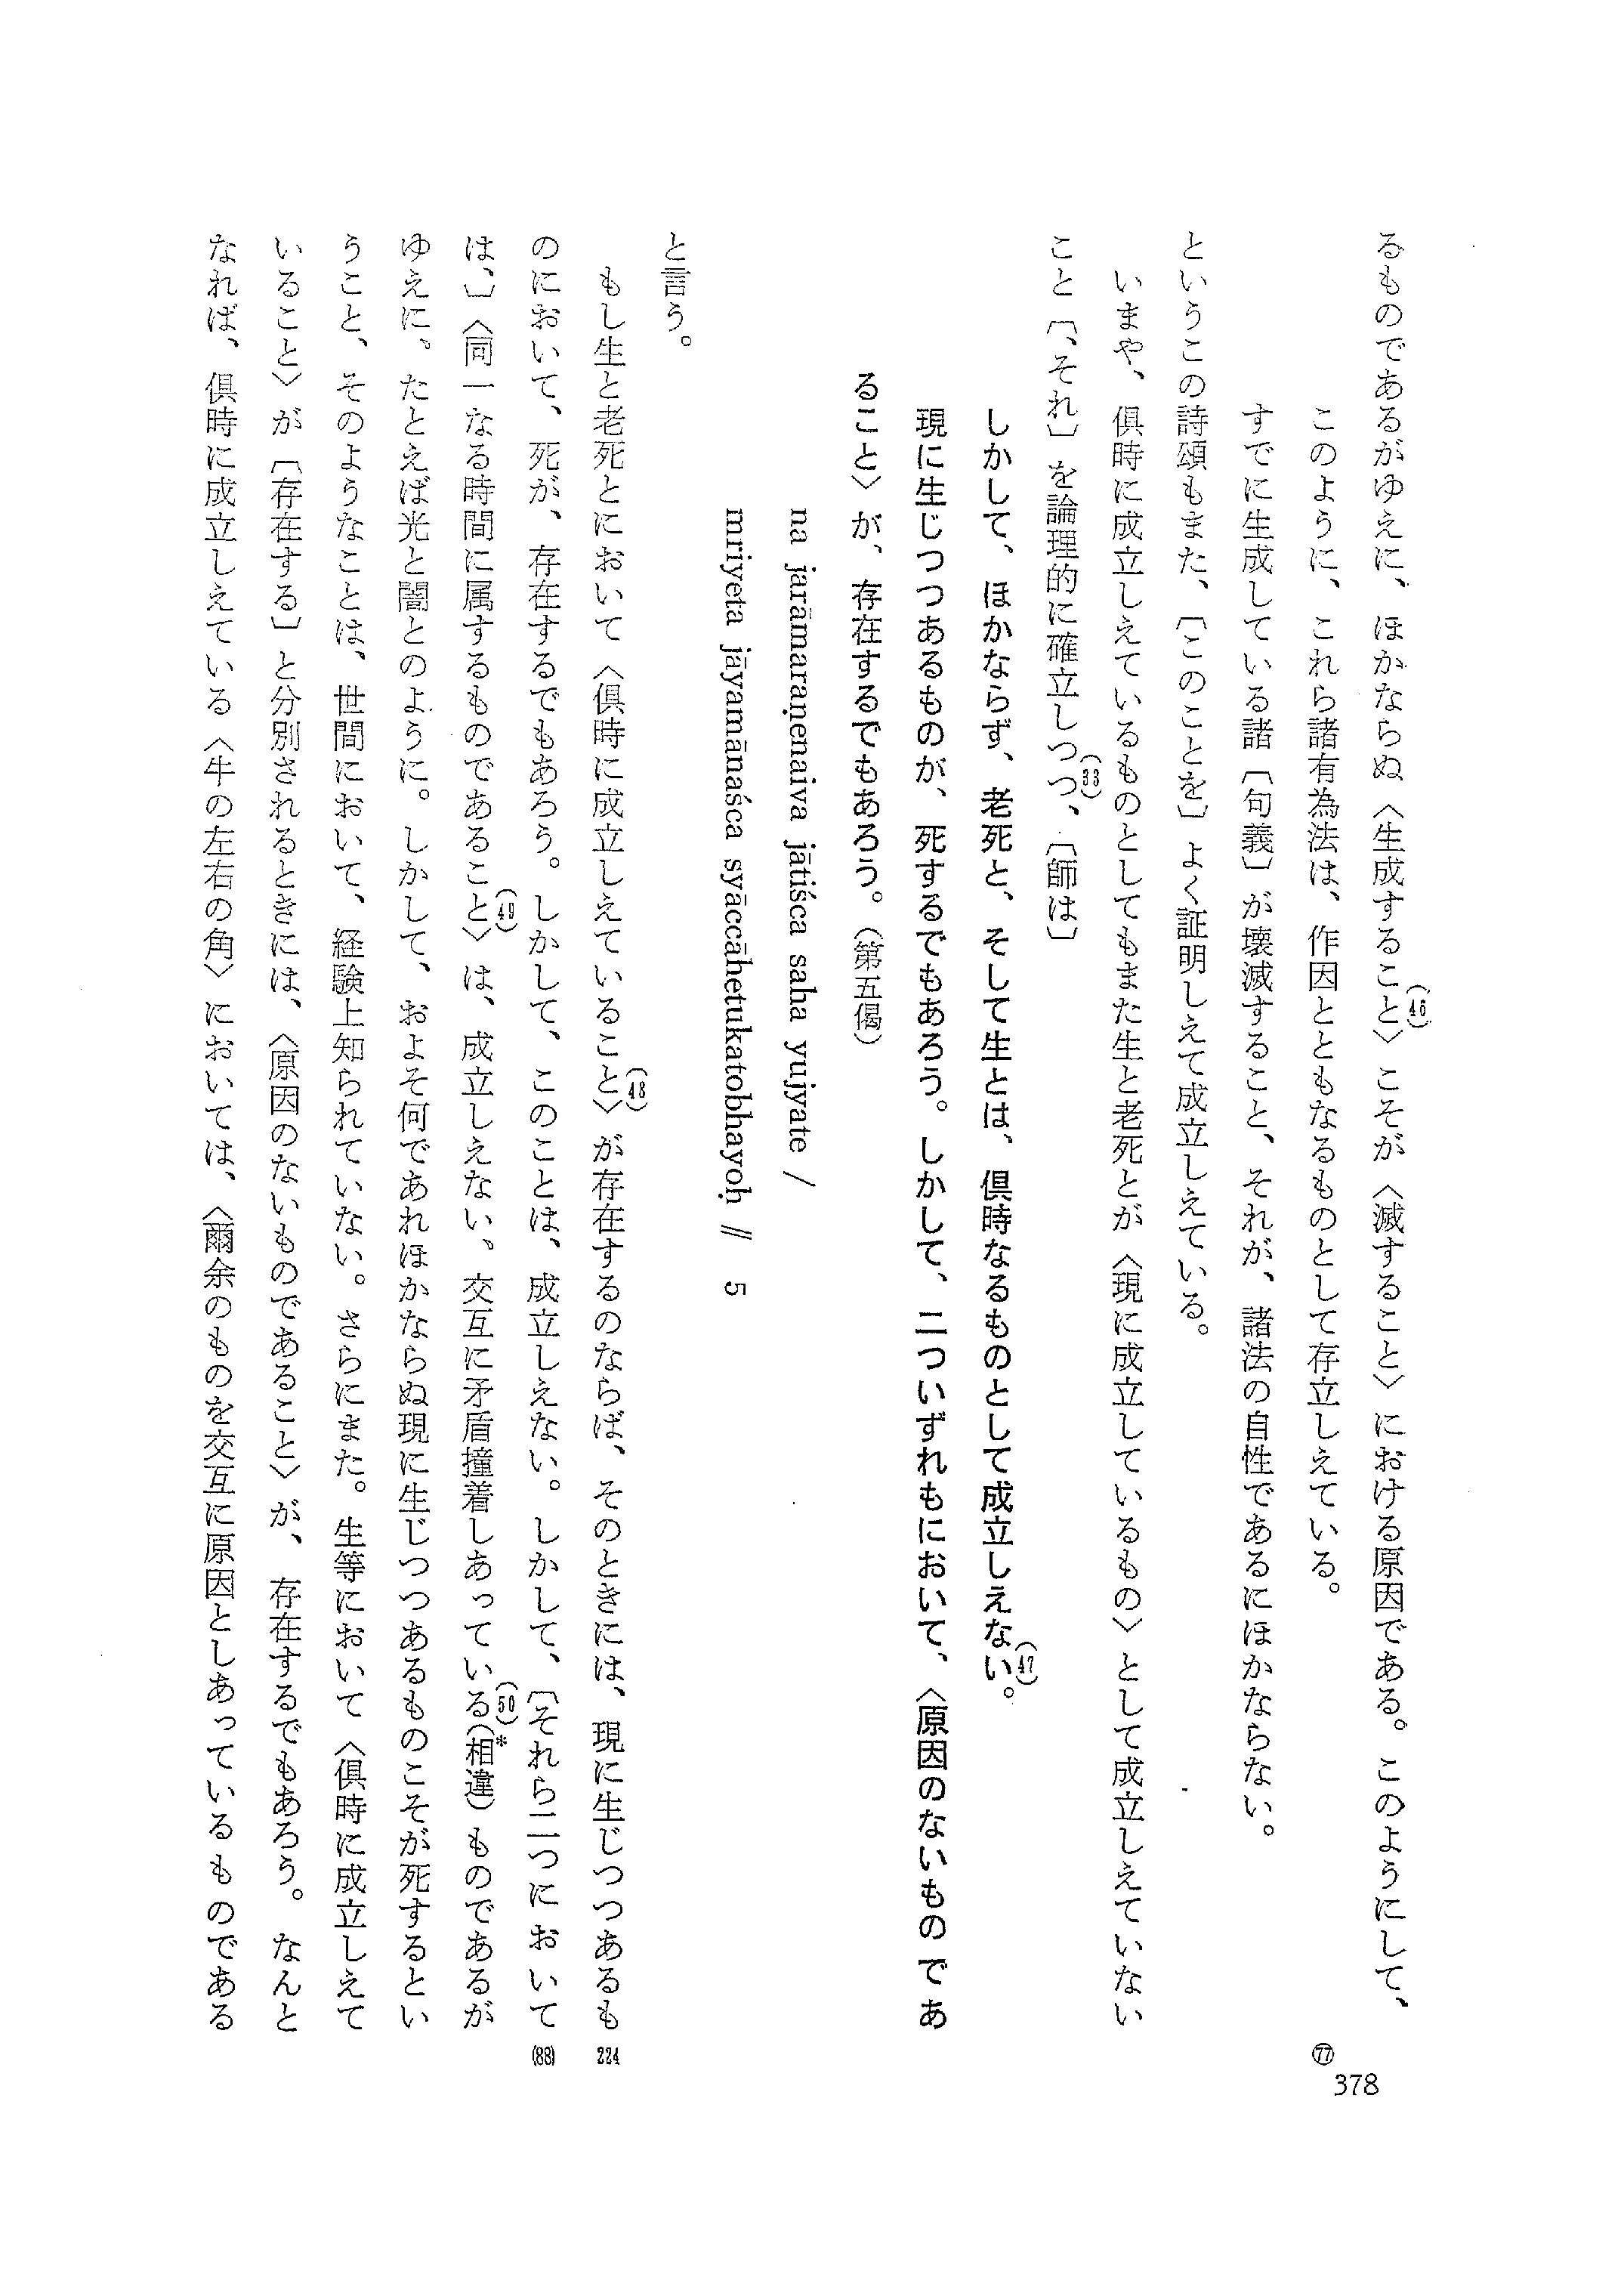 るものであるがゆえに、ほかならぬ〈生成すること〉(46)こそが〈滅すること〉における原因である。このようにして、
このように、これら諸有為法は、作因とともなるものとして存立しえている。
すでに生成している諸〔句義〕が壊滅すること、それが、諸法の自性であるにほかならない。
というこの詩頌もまた、〔このことを〕よく証明しえて成立しえている。
いまや、倶時に成立しえているものとしてもまた生と老死とが〈現に成立しているもの〉として成立しえていない
こと〔、それ〕を論理的に確立しつつ(33)、〔師は〕
しかして、ほかならず、老死と、そして生とは、倶時なるものとして成立しえない(47)。
現に生じつつあるものが、死するでもあろう。しかして、二ついずれもにおいて、〈原因のないものであ
ること〉が、存在するでもあろう。(第五偈)
na jarāmaraṇenaiva jātiśca saha yujyate /
mriyeta jāyamānaśca syāccāhetukatobhayoḥ // 5
と言う。
もし生と老死とにおいて〈倶時に成立しえていること〉(48)が存在するのならば、そのときには、現に生じつつあるも
のにおいて、死が、存在するでもあろう。しかして、このことは、成立しえない。しかして、〔それら二つにおいて
は、〕〈同一なる時間に属するものであること〉(49)は、成立しえない。交互に矛盾撞着しあっている(50)(相違)*ものであるが
ゆえに。たとえば光と闇とのように。しかして、およそ何であれほかならぬ現に生じつつあるものこそが死するとい
うこと、そのようなことは、世間において、経験上知られていない。さらにまた。生等において〈倶時に成立しえて
いること〉が〔存在する〕と分別されるときには、〈原因のないものであること〉が、存在するでもあろう。なんと
なれば、倶時に成立しえている〈牛の左右の角〉においては、〈爾余のものを交互に原因としあっているものである
224
(88)
77
378